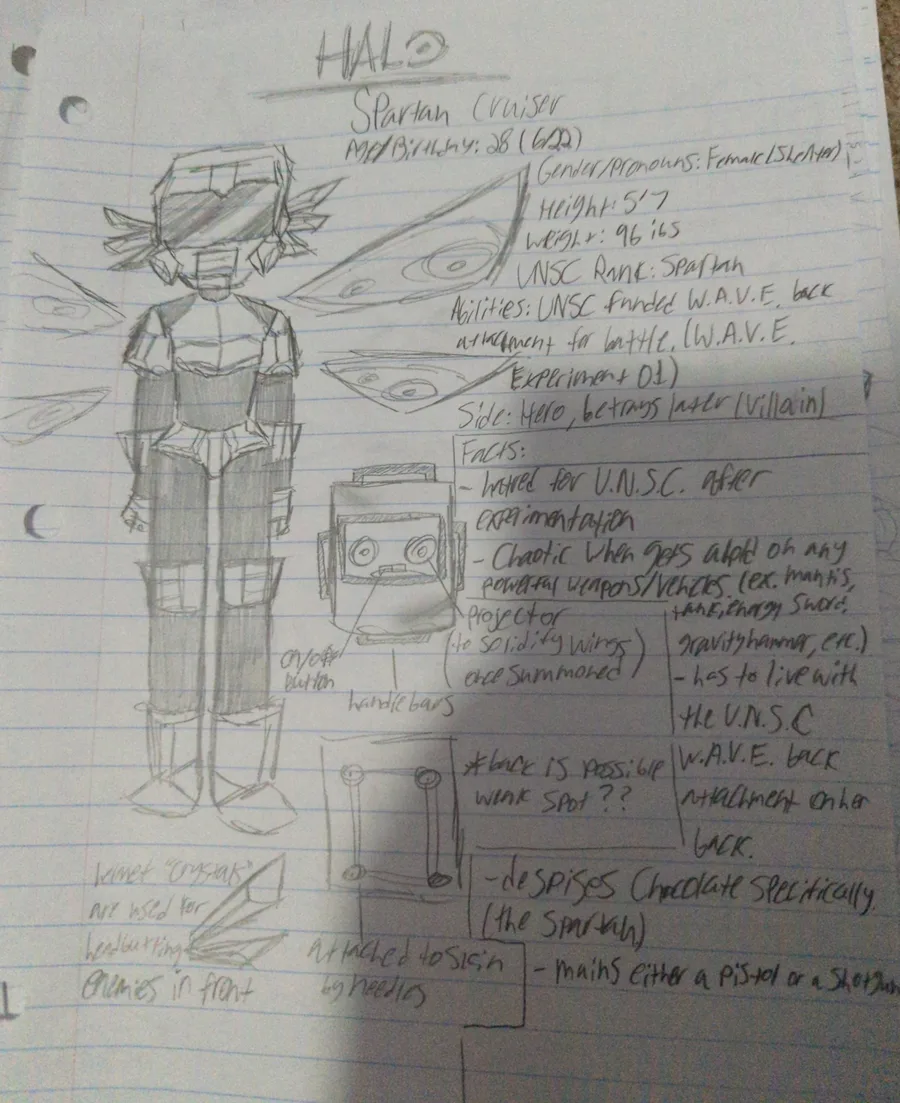 HALO
Spartan Cruiser
Age/Birthday: 28 (6/22)
Gender/pronouns: Female (She/her)
Height: 5'7
Weight: 96 lbs
UNSC Rank: Spartan
Abilities: UNSC funded W.A.V.E. back
attachment for battle. (W.A.V.E.
Experiment 01)
Side: Hero, betrays later (villain)
Facts:
- hatred for U.N.S.C. after
experimentation
- Chaotic when gets ahold on any
powerful weapons/vehicles (ex. mantis,
tank, energy sword,
gravity hammer, etc.)
- has to live with
the U.N.S.C
W.A.V.E. back
attachment on her
back.
projector
(to solidify wings
once summoned)
on/off
button
handlebars
*back is possible
weak spot??
- despises Chocolate specifically
(the Spartan)
- mains either a pistol or a shotgun
helmet "crystals"
are used for
headbutting
enemies in front
attached to skin
by needles